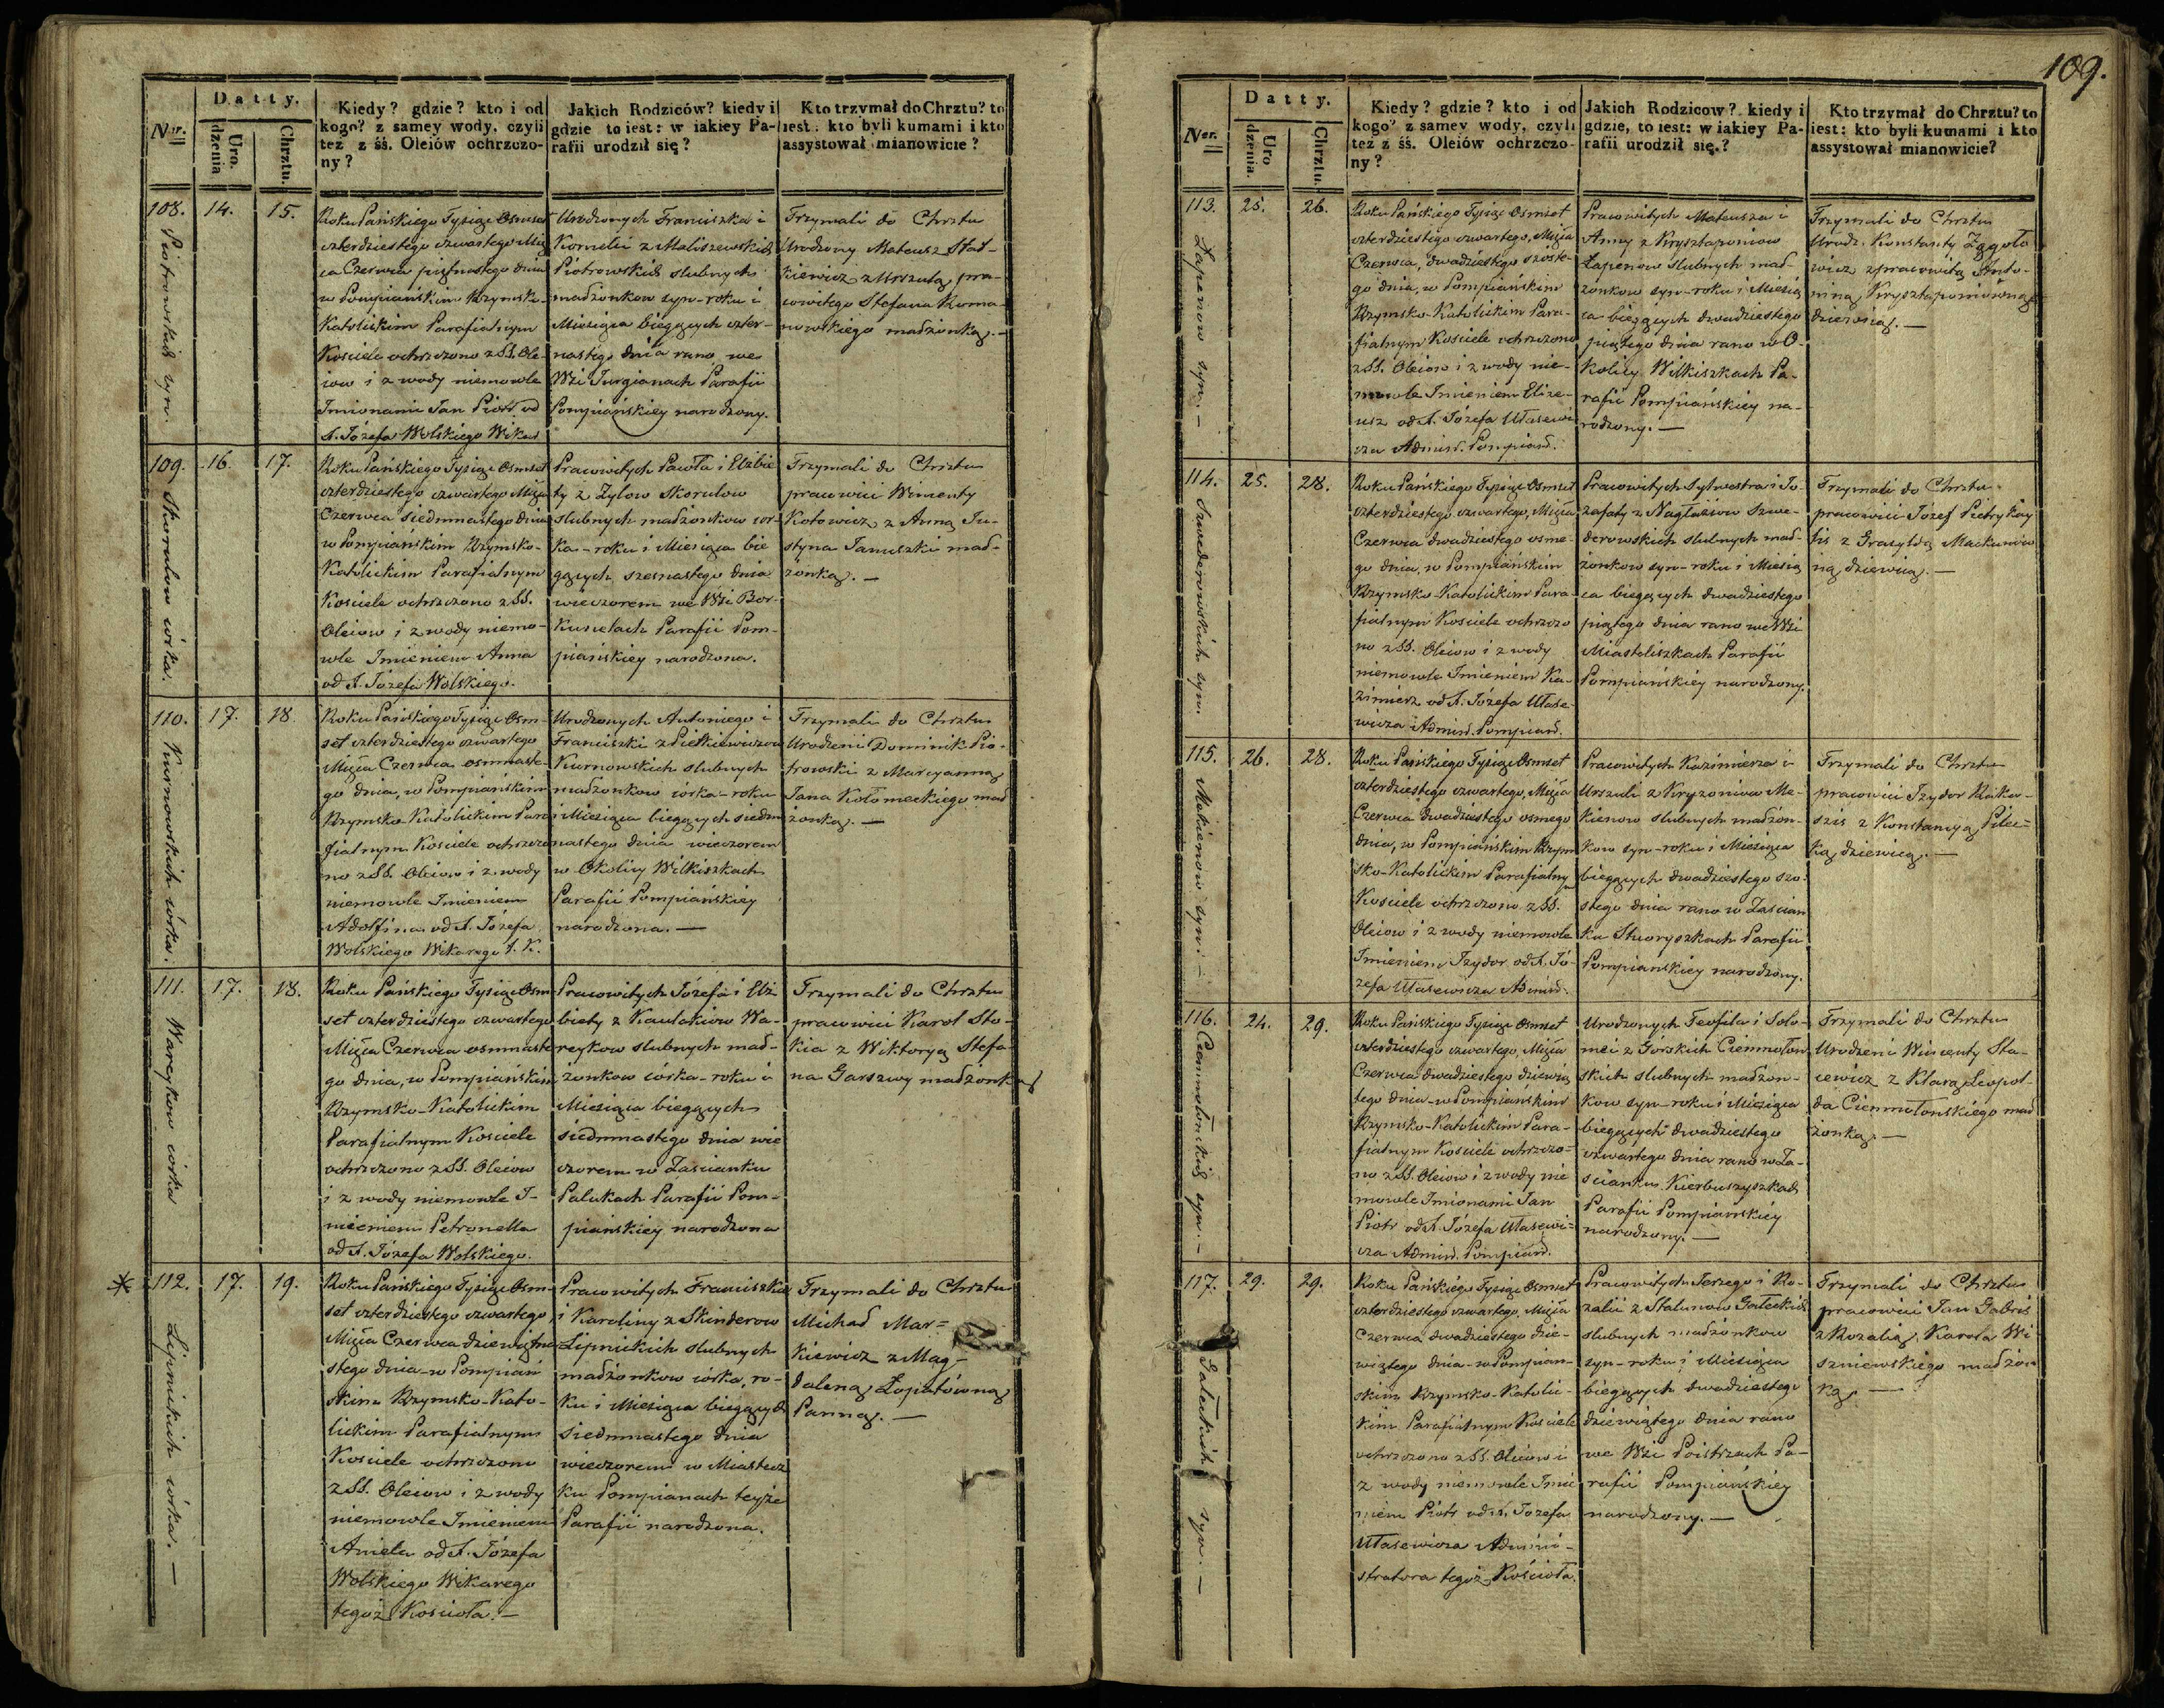 109.
Datty.
Ner.
Uro.
dzenia
Chrztu.
Kiedy? gdzie? kto i od
kogo? z samey wody, czyli
też z śś. Oleiów ochrzczo-
ny?
Jakich Rodziców? kiedy i
gdzie to iest: w iakiey Pa-
rafii urodził się?
Kto trzymał do Chrztu? to
iest: kto byli kumami i kto
assystował mianowicie?
108.
Piotrowskich syn.
14.
15.
Roku Pańskiego Tysiąc Osmset
czterdziestego czwartego Mię
ca Czerwca piętnastego dnia
w Pompiańskim Rzymsko-
Katolickim Parafialnym
Kosciele ochrzczono z SS. Ole-
iow i z wody niemowle
Imionami Jan Piotr od
X. Józefa Wolskiego Wikar
Urodzonych Franciszka i
Kornelii z Maliszewskich
Piotrowskich slubnych
małżonkow syn-roku i
Miesiąca bieżących czter-
nastego dnia rano we
Wsi Jurgianach Parafii
Pompiańskiey narodzony.
Trzymali do Chrztu
Urodzony Mateusz Stat-
kiewicz z Urszulą, pra-
cowitego Stefana Roma-
nowskiego małżonką.-
109.
Skorulow córka.
16.
17.
Roku Pańskiego Tysiąc Osmset
czterdziestego czwartego Mięca
Czerwca siedmnastego dnia
w Pompiańskim Rzymsko-
Katolickim Parafialnym
Kosciele ochrzczono z SS.
Oleiow i z wody niemo-
wle Imieniem Anna
od X. Józefa Wolskiego.
Pracowitych Pawła i Elżbie
ty z Zylow Skorulow
slubnych małżonkow cor-
ka-roku i Miesiąca bie
gących szesnastego dnia
wieczorem we Wsi Bor-
kunelach Parafii Pom-
piańskiey narodzona.
Trzymali do Chrztu
pracowici Wincenty
Kotowicz z Anną Ju-
styna Januszki mał-
żonką.-
110.
Kurnowskich córka.
17.
18
Roku Pańskiego Tysiąc Osm-
set czterdziestego czwartego
Mięca Czerwca osmnaste-
go dnia, w Pompiańskim
Rzymsko-Katolickim Para
fialnym Kosciele ochrzczo
no z SS. Oleiow i z wody
niemowle Imieniem
Adolfina od X. Józefa
Wolskiego Wikarego t. K.
Urodzonych Antoniego i
Franciszki z Pietkiewiczow
Kurnowskich slubnych
małżonkow córka-roku
i Miesiąca bieżących siedm
nastego dnia wieczorem
w Okolicy Wilkiszkach
Parafii Pompiańskiey
narodzona.-
Trzymali do Chrztu
Urodzeni Dominik Pio-
trowski z Maryanną
Jana Kołomeckiego mał
żonką.-
111.
Wareykow córka
17.
18.
Roku Pańskiego Tysiąc Osm
set czterdziestego czwartego
Mięca Czerwca osmnaste
go dnia, w Pompiańskim
Rzymsko-Katolickim
Parafialnym Kosciele
ochrzczono z SS. Oleiow
i z wody niemowle I-
mieniem Petronella
od X. Józefa Wolskiego.
Pracowitych Józefa i Elż-
biety z Kaulakiow Wa-
reykow slubnych mał-
żonkow córka-roku i
Miesiąca bieżących
siedmnastego dnia wie
czorem w Zascianku
Palukach Parafii Pom-
piańskiey narodzona
Trzymali do Chrztu
pracowici Karol Sto-
kia z Wiktoryą Stefa-
na Garszwy małżonką
* 112.
Lipnickich córka.-
17.
19.
Roku Pańskiego Tysiąc Osm-
set czterdziestego czwartego
Mięca Czerwca dziewiętna-
stego dnia-w Pompiań
skim Rzymsko-Kato-
lickim Parafialnym
Kosciele ochrzczono
z SS. Oleiow i z wody
niemowle Imieniem
Aniela od X. Józefa
Wolskiego Wikarego
tegoż Kosciola.-
Pracowitych Franciszka
i Karoliny z Skinderow
Lipnickich slubnych
małżonkow córka, ro-
ku i Miesiąca bieżących
siedmnastego dnia
wieczorem w Miastecz
ku Pompianach teyże
Parafii narodzona.
Trzymali do Chrztu
Michał Mar=
kiewicz z Mag-
daleną Łopatówną
Panną.-
Datty.
Ner.
Uro
dzenia.
Chrztu.
Kiedy? gdzie? kto i od
kogo? z samey wody, czyli
też z śś. Oleiów ochrzczo-
ny?
Jakich Rodzicow? kiedy i
gdzie, to iest: w iakiey Pa-
rafii urodził się.?
Kto trzymał do Chrztu? to
iest: kto byli kumami i kto
assystował mianowicie?
113.
Łapenow syn.-
25.
26.
Roku Pańskiego Tysiąc Osmset
czterdziestego czwartego, Mięca
Czerwca, dwadziestego szoste-
go dnia, w Pompiańskim
Rzymsko-Katolickim Para-
fialnym Kosciele ochrzczono
z SS. Oleiow i z wody nie-
mowle Imieniem Elize-
usz od X. Józefa Ułasewi
cza Admin. Pompiań.
Pracowitych Mateusza i
Anny z Krysztaponiow
Łapenow slubnych mał-
żonkow syn-roku i Miesią
ca bieżących dwadziestego
piątego dnia rano w O-
kolicy Wilkiszkach Pa-
rafii Pompiańskiey na-
rodzony.-
Trzymali do Chrztu
Urodz. Konstanty Zągoło
wicz z pracowitą Anto-
niną Krysztaponiówną
dziewicą.-
114.
Szwederowskich syn.
25.
28.
Roku Pańskiego Tysiąc Osmset
czterdziestego czwartego, Mięca
Czerwca dwadziestego osme-
go dnia, w Pompiańskim
Rzymsko-Katolickim Para-
fialnym Kosciele ochrzczo
no z SS. Oleiow i z wody
niemowle Imieniem Ka-
zimierz od X. Józefa Ułase-
wicza Admin. Pompiań.
Pracowitych Sylwestra i Jo-
zafaty z Nagłaiiow Szwe-
derowskich slubnych mał-
żonkow syn-roku i Miesią
ca bieżących dwadziestego
piątego dnia rano we Wsi
Miastoliszkach Parafii
Pompiańskiey narodzony.
Trzymali do Chrztu
pracowici Jozef Pietrykay
tis z Grasyldą Mackunów
ną dziewicą.-
115.
Mekienow syn.-
26.
28.
Roku Pańskiego Tysiąc Osmset
czterdziestego czwartego, Mięca
Czerwca dwadziestego osmego
dnia, w Pompiańskim Rzym
sko-Katolickim Parafialny
m
Kosciele ochrzczono z SS.
Oleiow i z wody niemowle
Imieniem Izydor od X. Jó-
zefa Ułasewicza Admin.
Pracowitych Kazimierza i
Urszuli z Kryzoniow Me-
kienow slubnych małżon-
kow syn-roku i Miesiąca
bieżących dwadziestego szo-
stego dnia rano w Zascian
ku Skworyszkach Parafii
Pompianskiey narodzony.
Trzymali do Chrztu
pracowici Izydor Rako-
szis z Konstancyą Pilec=
ką dziewicą.-
116.
Ciemnołonskich syn.-
24.
29.
Roku Pańskiego Tysiąc Osmset
czterdziestego czwartego, Mięca
Czerwca dwadziestego dziewią
tego dnia-w Pompianskim
Rzymsko-Katolickim Para-
fialnym Kosciele ochrzczo-
no z SS. Oleiow i z wody nie
mowle Imionami Jan
Piotr od X. Józefa Ułasewi=
cza Admin. Pompiań.
Urodzonych Teofila i Salo-
mei z Górskich Ciemnołon
skich slubnych małżon-
kow syn-roku i Miesiąca
bieżących dwadziestego
czwartego dnia rano w Za-
scianku Kierbuszyszkach
Parafii Pompianskiey
narodzony.-
Trzymali do Chrztu
Urodzeni Wincenty Sta-
cewicz z Klarą Leopol-
da Ciemnołonskiego mał
żonką.-
117.
Gałeckich syn.-
29.
29.
Roku Pańskiego Tysiąc Osmset
czterdziestego czwartego, Mięca
Czerwca dwadziestego dzie-
wiątego dnia-w Pompian-
skim Rzymsko-Katolic-
kim Parafialnym Kosciele
ochrzczono z SS. Oleiow i
z wody niemowle Imie
niem Piotr od X. Jozefa
Ułasewicza Admini-
stratora tegoż Kościoła.
Pracowitych Jerzego i Ro-
zalii z Stalunow Gałeckich
slubnych małżonkow
syn-roku i Miesiąca
bieżących dwadziestego
dziewiątego dnia rano
we Wsi Poistrzach Pa-
rafii Pompiańskiey
narodzony.-
Trzymali do Chrztu
pracowici Jan Gabris
z Rozalią Karola Wi-
szniewskiego małżon
ką.-